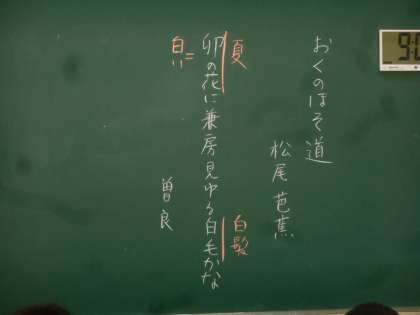 おくのほそ道
松尾芭蕉
夏
白髪
卯の花に兼房見ゆる白毛かな
白い
曽良